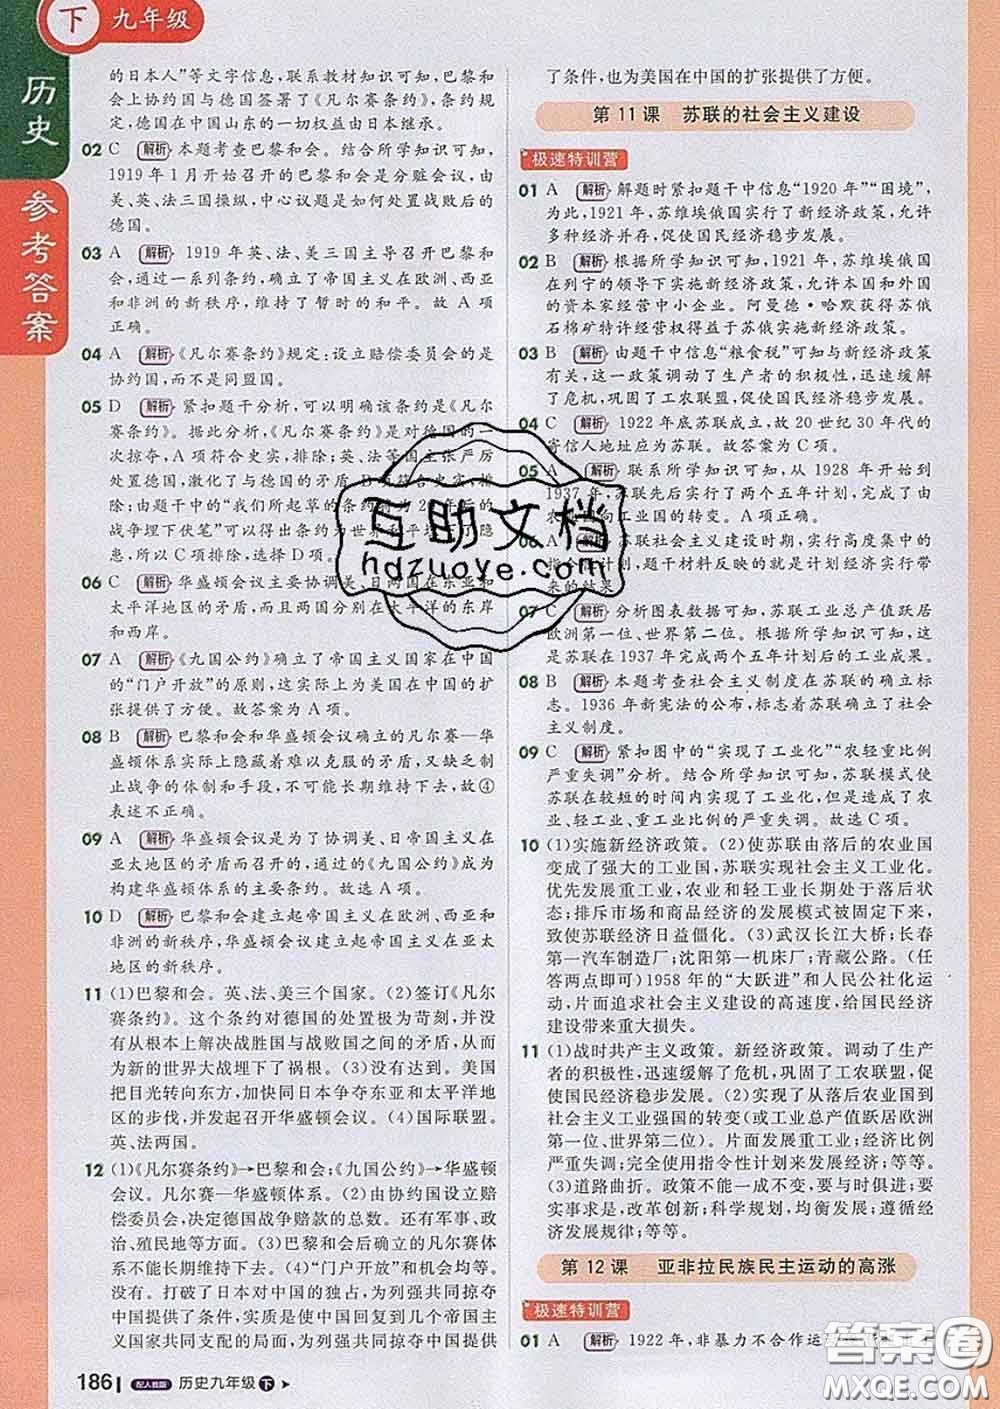 下 九年级
历史
参考答案
的日本人”等文字信息，联系教材知识可知，巴黎和
会上协约国与德国签署了《凡尔赛条约》，条约规
定，德国在中国山东的一切权益由日本继承。
02 C 解析 本题考查巴黎和会。结合所学知识可知，
1919年1月开始召开的巴黎和会是分赃会议，由
美、英、法三国操纵，中心议题是如何处置战败后的
德国。
03 A 解析 1919年英、法、美三国主导召开巴黎和
会，通过一系列条约，确立了帝国主义在欧洲、西亚
和非洲的新秩序，维持了暂时的和平。故A项
正确。
04 A 解析 《凡尔赛条约》规定：设立赔偿委员会的是
协约国，而不是同盟国。
05 D 解析 紧扣题干分析，可以明确该条约是《凡尔
赛条约》。据此分析，《凡尔赛条约》是对德国的
一次掠夺，A项符合史实，排除；英、法等国主张严厉
处置德国，削弱了德国，B项符合史实，排
除；由题干中的“我们所起草的条约将为20年后的
战争埋下伏笔”可以得出条约为世界和平埋下了隐
患，所以C项排除，选择D项。
06 C 解析 华盛顿会议主要协调美、日两国在东亚和
太平洋地区的矛盾，而且两国分别在太平洋的东岸
和西岸。
07 A 解析 《九国公约》确立了帝国主义国家在中国
的“门户开放”的原则，这实际上为美国在中国的扩
张提供了方便。故答案为A项。
08 B 解析 巴黎和会和华盛顿会议建立的凡尔赛—华
盛顿体系有着难以克服的矛盾，又缺乏制
止战争的体制和手段，不可能长期维持下去，故④
表述不正确。
09 A 解析 华盛顿会议是为了协调美、日帝国主义在
亚太地区的矛盾而召开的，《九国公约》成为
构建华盛顿体系的主要条约。故选A项。
10 D 解析 巴黎和会建立起帝国主义在欧洲、西亚和
非洲的新秩序，华盛顿会议建立起帝国主义在亚太
地区的新秩序。
11 (1)巴黎和会。英、法、美三个国家。(2)签订《凡尔
赛条约》。这个条约对德国的处置极为苛刻，并没有
从根本上解决战胜国与战败国之间的矛盾，从而为
新的世界大战埋下了祸根。(3)没有达到目的。美国
把目光转向东方，加快同日本争夺东亚和太平洋地
区的步伐，并发起召开华盛顿会议。(4)国际联盟。
英、法两国。
12 (1)《凡尔赛条约》→巴黎和会；《九国公约》→华盛顿
会议。凡尔赛—华盛顿体系。(2)由协约国设立赔
偿委员会，决定德国战争赔款的总数。还有军事、政
治、殖民地等方面。(3)巴黎和会后确立的凡尔赛体
系不可能长期维持下去。(4)“门户开放”和机会均等。
没有。打破了日本对中国的独占，为列强共同掠夺
中国提供了条件，会议使中国回复到几个帝国主义
国家共同支配的局面，为列强共同掠夺中国提供
186 配人教版 历史九年级 下
了条件，也为美国在中国的扩张提供了方便。
第11课 苏联的社会主义建设
极速特训营
01 A 解析 解题时紧扣题干中信息“1920年”“困境”，
为此，1921年，苏维埃俄国实行了新经济政策，允许
多种经济并存，促使国民经济稳步发展。
02 B 解析 根据所学知识可知，1921年，苏维埃俄国
在列宁的领导下实施新经济政策，允许本国和外国
的资本家经营中小企业。阿曼德·哈默获得苏俄
石棉矿特许经营权得益于苏俄实施新经济政策。
03 B 解析 由题干中信息“粮食税”可知与新经济政策
有关，这一政策调动了生产者的积极性，迅速缓解
了危机，巩固了工农联盟，促使国民经济稳步发展。
04 C 解析 1922年底苏联成立，故20世纪30年代的
寄信人地址应为苏联。故答案为C项。
05 A 解析 联系所学知识可知，从1928年开始到
1937年，苏联先后实行了两个五年计划，完成了由
农业国向工业国的转变。A项正确。
06 A 解析 苏联社会主义建设时期，实行高度集中的
指令性计划，题干材料反映的就是计划经济带
来的结果。
07 C 解析 分析图表数据可知，苏联工业总产值跃居
欧洲第一位、世界第二位。根据所学知识可知，这
是苏联在1937年完成两个五年计划后的工业成果。
08 B 解析 本题考查社会主义制度在苏联的确立标
志。1936年新宪法的公布，标志着苏联建立了社
会主义制度。
09 C 解析 紧扣图中的“实现了工业化”“农轻重比例
严重失调”分析。根据所学知识可知，苏联模式使
苏联在较短的时间内实现了工业化，但是造成了农
业、轻工业、重工业比例的严重失调。故选C项。
10 (1)实施新经济政策。(2)使苏联由落后的农业国
变成了强大的工业国，苏联实现社会主义工业化。
优先发展重工业，农业和轻工业长期处于落后状
态；排斥市场和商品经济的发展模式被固定下来，
致使苏联经济日益僵化。(3)武汉长江大桥；长春
第一汽车制造厂；沈阳第一机床厂；青藏公路。（任
答两点即可）1958年的“大跃进”和人民公社化运
动，片面追求社会主义建设的高速度，给国民经济
建设带来重大损失。
11 (1)战时共产主义政策。新经济政策。调动了生产
者的积极性，迅速缓解了危机，巩固了工农联盟，促
使国民经济稳步发展。(2)实现了从落后农业国到
社会主义工业强国的转变（或工业总产值跃居欧洲
第一位、世界第二位）。片面发展重工业；农业比例
严重失调；完全使用指令性计划来发展经济；等等。
(3)道路曲折。政策不能一成不变，要与时俱进；要
实事求是，改革创新；科学规划，均衡发展；遵循经
济发展规律；等等。
第12课 亚非拉民族民主运动的高涨
极速特训营
01 A 解析 1922年，非暴力不合作运
互助文档
hdzuoye.com
答案圈
MXQE.COM